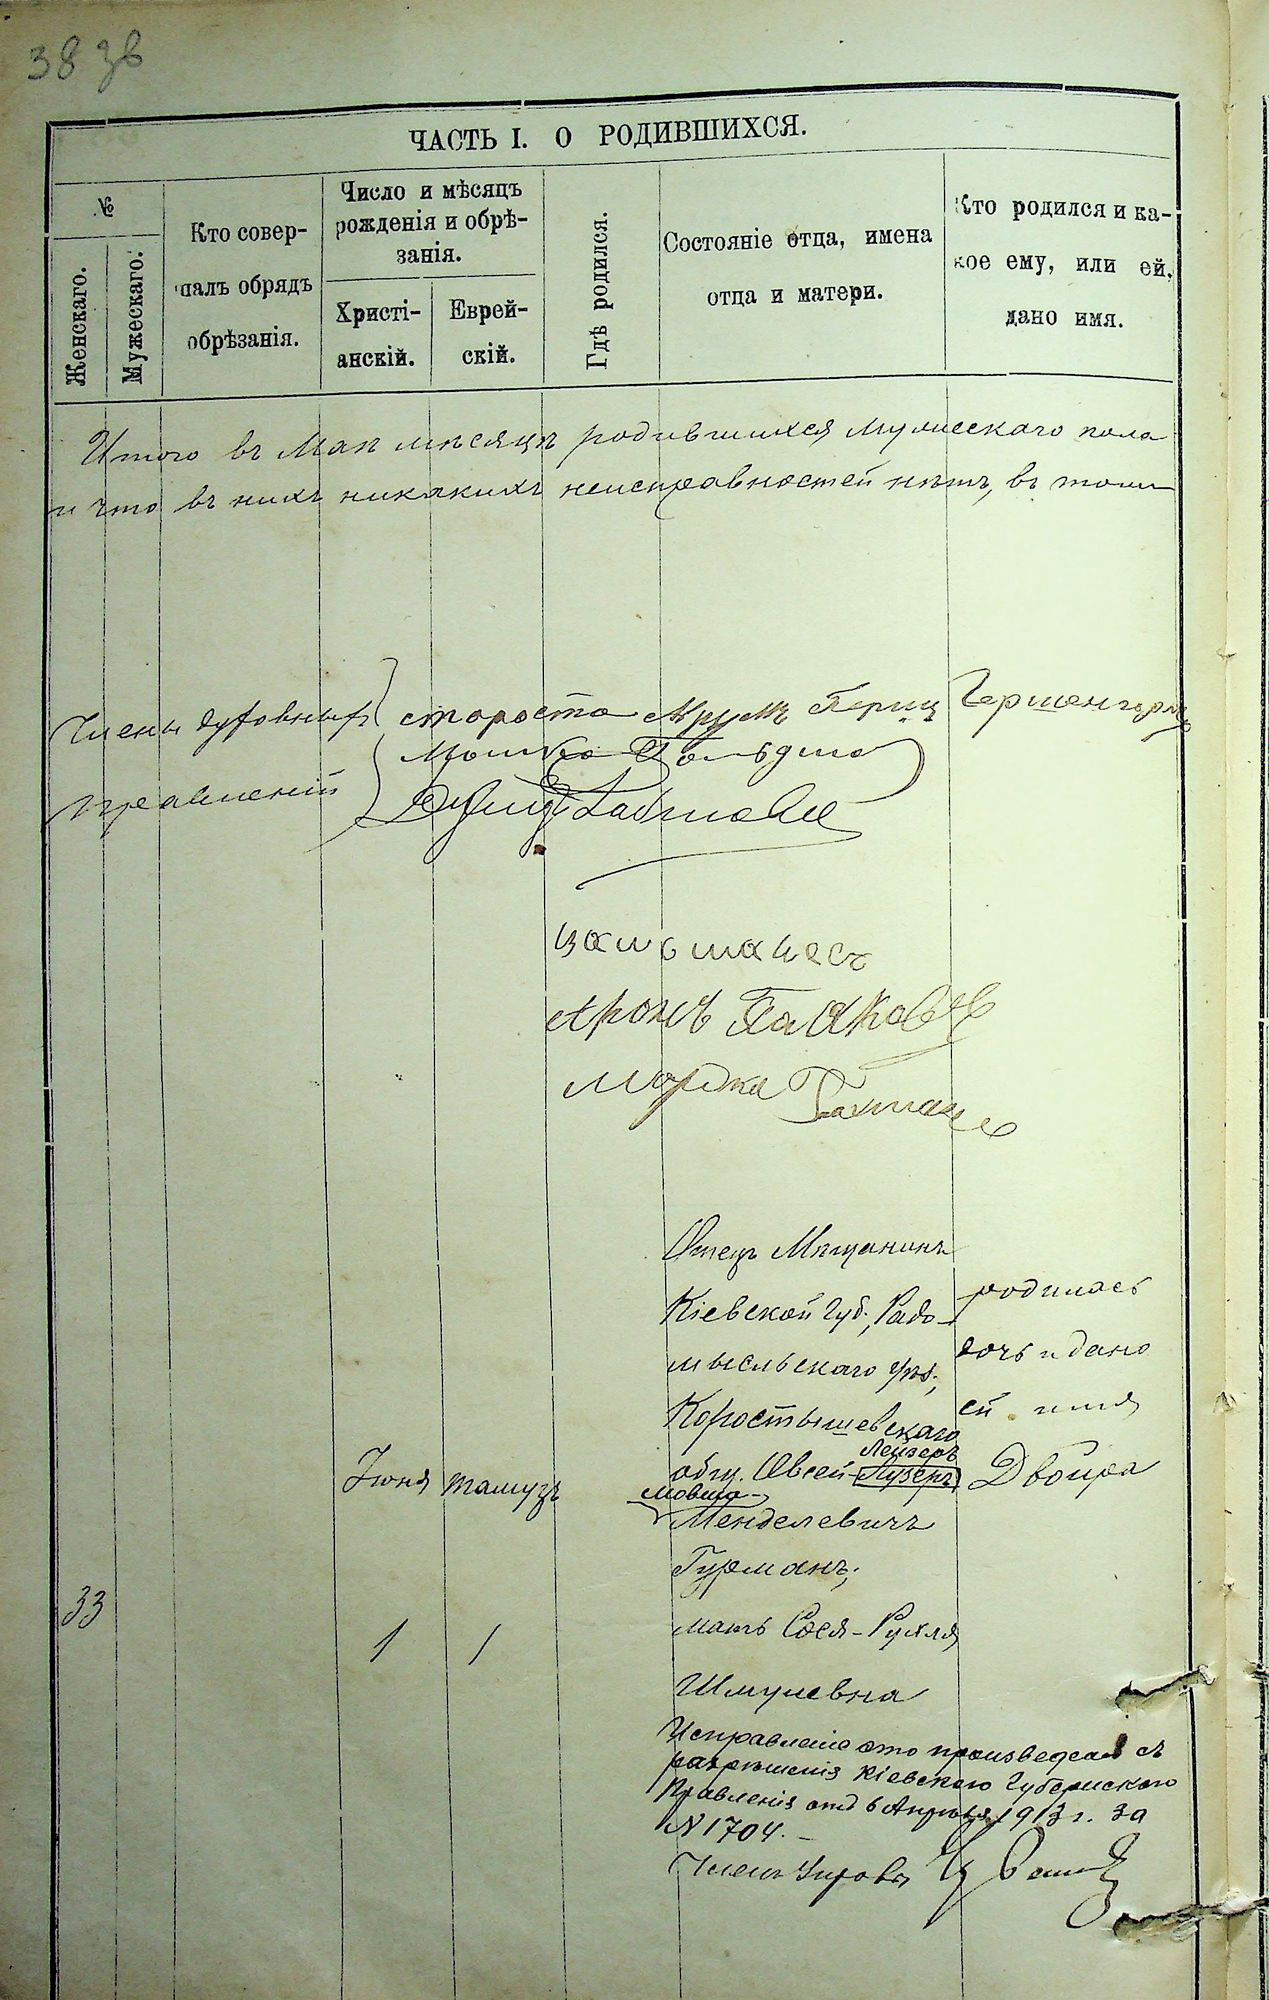 38 зв
ЧАСТЬ I. О РОДИВШИХСЯ.
№
Женскаго.
Мужескаго.
Кто совер-
шалъ обрядъ
обрѣзанія.
Число и мѣсяцъ
рожденія и обрѣ-
занія.
Христі-
анскій.
Еврей-
скій.
Гдѣ родился.
Состояніе отца, имена
отца и матери.
Кто родился и ка-
кое ему, или ей,
дано имя.
Итого въ Маѣ мѣсяцѣ родившихся мужескаго пола
и что въ нихъ никакихъ неисправностей нѣтъ, въ томъ
Члены духовныхъ
правленій
староста Герш
Мошко
казначей
Аронъ
Мордко
33
Іюня
1
тамузъ
1
Отецъ Мѣщанинъ
Кіевской губ., Радо-
мысльскаго уѣз.,
Коростышевскаго
Лейзеръ
общ. Овсей-Лузеръ
Мовша-
Менделевичъ
Гурманъ;
мать Сося-Рухля
Шмулевна
родилась
дочь и дано
ей имя
Двойра
Исправленіе это произведено съ
разрѣшенія Кіевского Губернскаго
Правленія отъ 6 Апрѣля 1913 г. за
N 1704. –
Членъ Управы